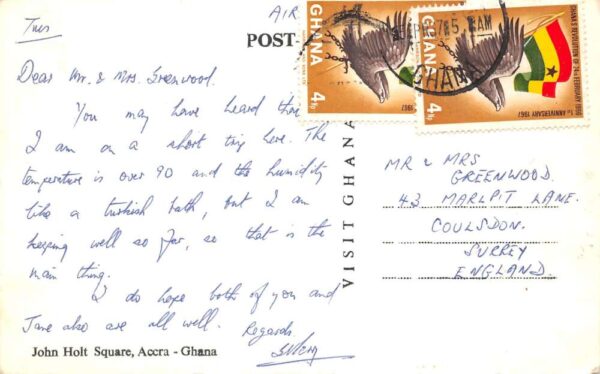 Tues
AIR
POST-
Dear Mr. & Mrs. Greenwood.
You may have heard that
I am on a short trip here. The
temperature is over 90 and the humidity
like a turkish bath, but I am
keeping well so far, so that is the
main thing.
I do hope both of you and
Jane also are all well. Regards
John Holt Square, Accra - Ghana
VISIT GHANA
GHANA
4 Np
1967
GHANA
4 Np
GHANA'S REVOLUTION OF 24th FEBRUARY 1966
1st ANNIVERSARY 1967
AM
GHANA
MR & MRS
GREENWOOD.
43 MARLPIT LANE.
COULSDON.
SURREY
ENGLAND.